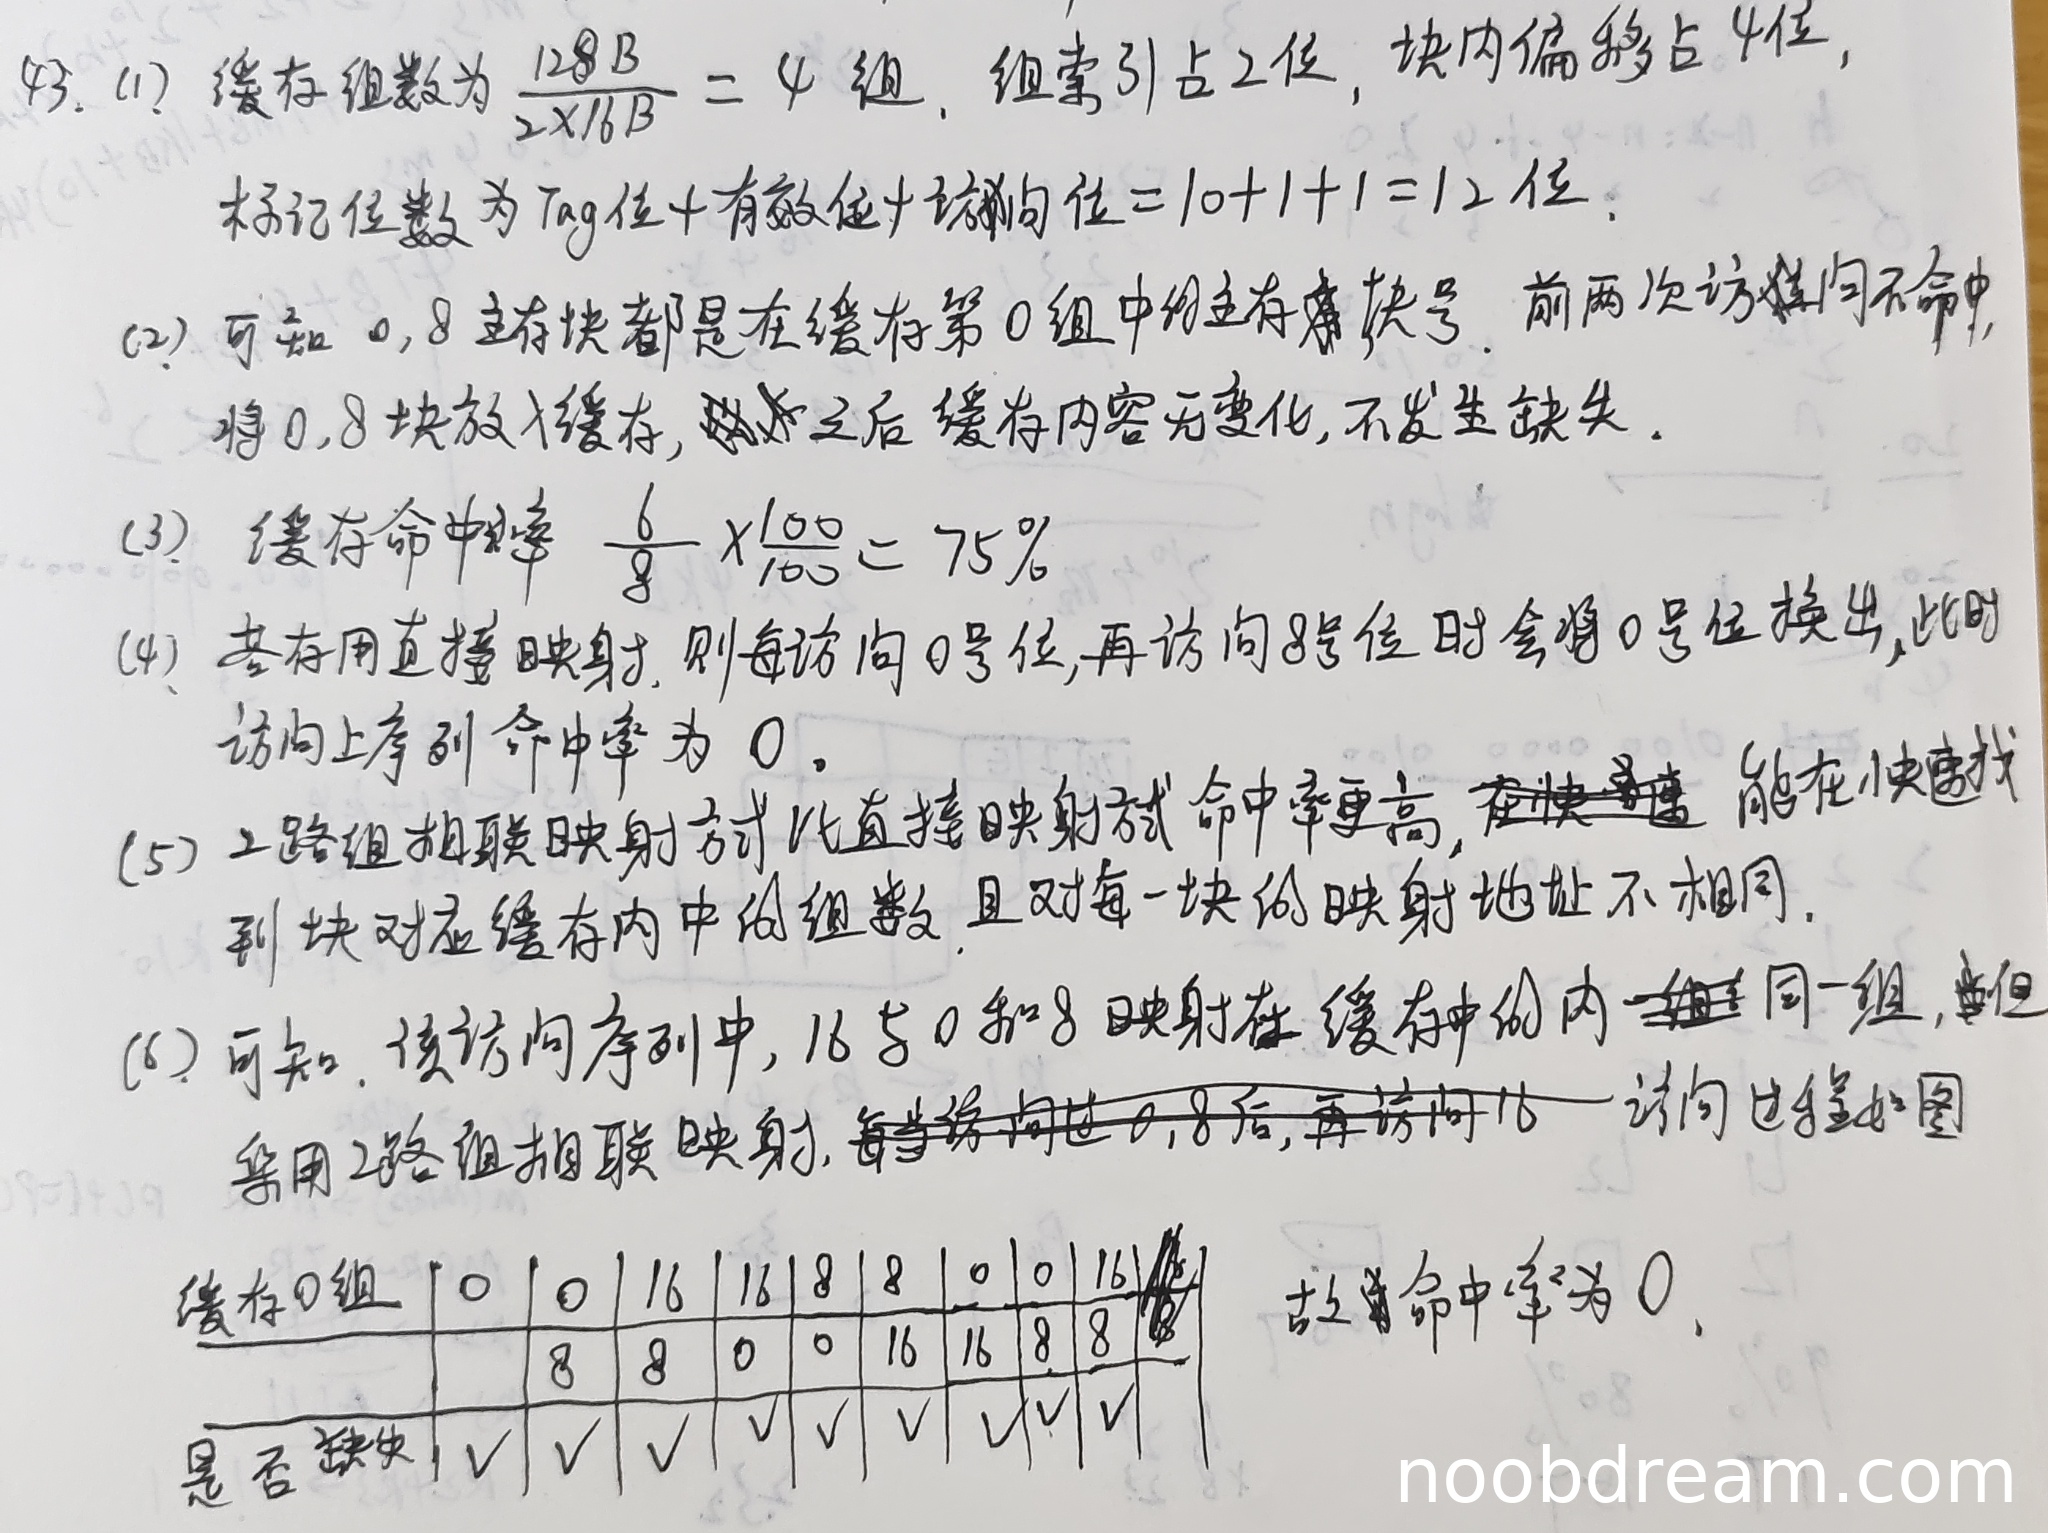 43. (1) 缓存组数为 128B / 2×16B = 4 组. 组索引占2位, 块内偏移占4位,
标记位数为Tag位+有效位+访问位=10+1+1=12位.
(2) 可知 0,8主存块都是在缓存第0组中的主存块号. 前两次访问不命中,
将0,8块放入缓存, 之后缓存内容无变化, 不发生缺失.
(3) 缓存命中率 6/8 ×100/100= 75%
(4) 若存用直接映射, 则每访问0号位,再访问8号位时会将0号位换出,此时
访问上序列命中率为0.
(5) 2路组相联映射方式比直接映射方式命中率更高, 能在快速找
到块对应缓存内中的组数, 且对每一块的映射地址不相同.
(6) 可知. 该访问序列中, 16与0和8映射在缓存中的内同一组, 但
采用2路组相联映射, 每当访问过0,8后,再访问16 访问过程如图
缓存0组 0 0 16 16 8 8 0 0 16 故命中率为0.
8 8 0 0 16 16 8 8
是否缺失 ✓ ✓ ✓ ✓ ✓ ✓ ✓ ✓ ✓
noobdream.com